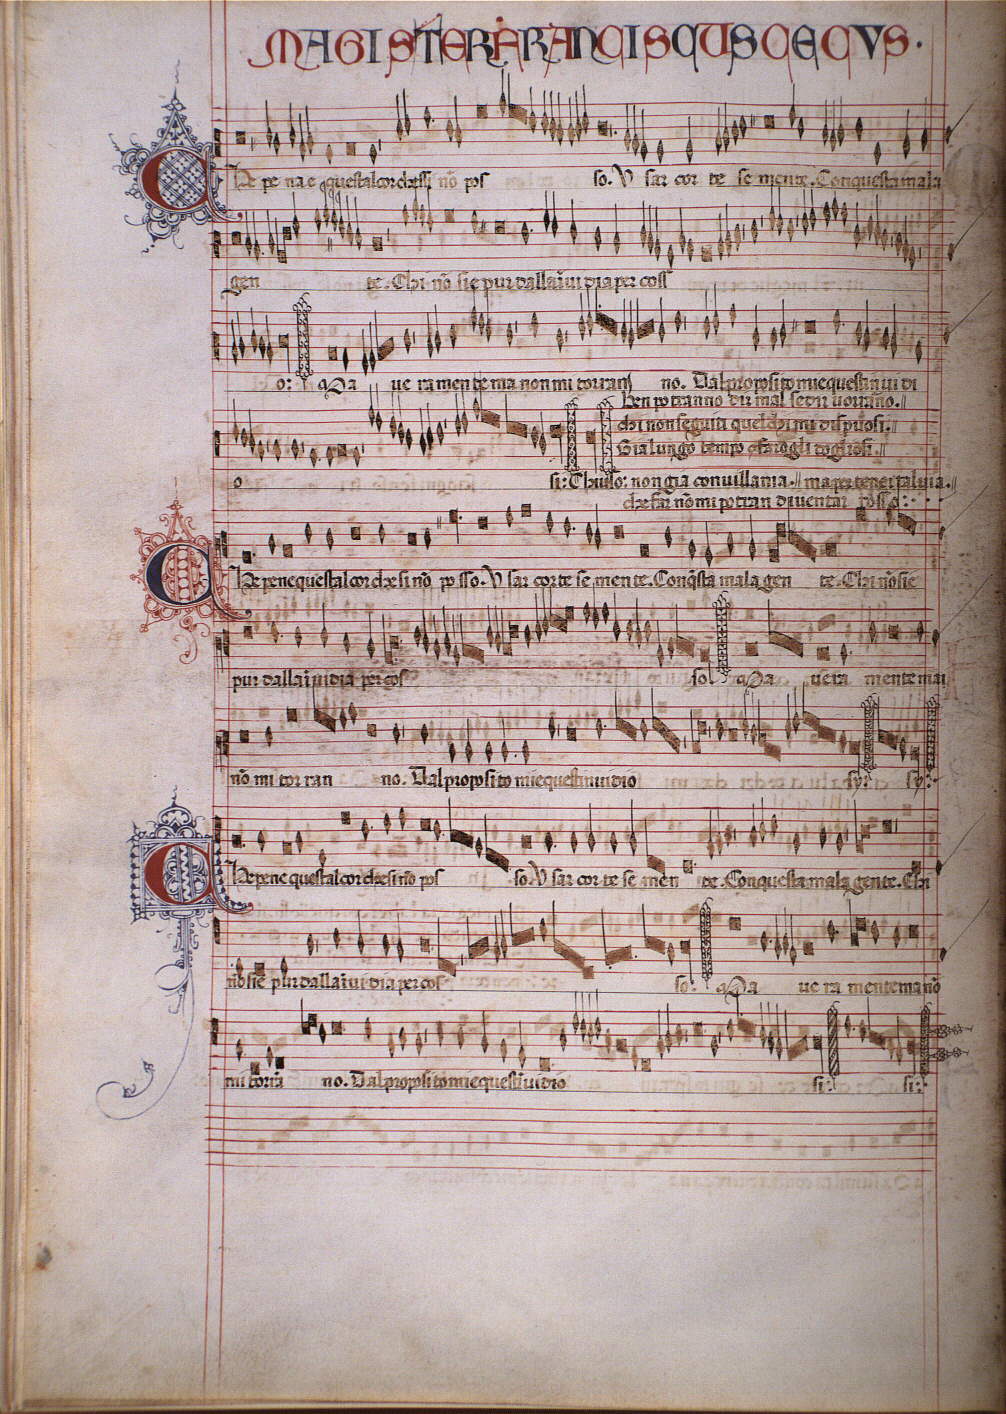 MAGISTER FRANCISCUS CECVS.
Che pe na e questal cor chessi nō pos so. V sar cor te se mente. Con questa mala
gen te. Chi nō sie pur dallaīui dia per coss
o: Ma ue ra men te ma non mi torran no. Dal proposito mie questin ui di
Ben potranno dir mal se dir uorrāno.
chi non seguia quel chi mi dispuosi.
Gia lungo tempo
o si: Chiuso: non gia con uillania. ma per
che far nō mi potran diuentar rosso:
Che pene questal cor che si nō posso. V sar cor te se men te. Con q̄sta mala gen te. Chi nō sie
pur dallaīuidia per cos so Ma ue ra mente mai
nō mi tor ran no. Dal proposito mie questinuidio sy: sy:
Che pene questal cor che si nō pos so. V sar cor te se men te. Con questa mala gente. Chi
nō sie pur dallaīui dia per cos so. Ma ue ra mente ma nō
mi torrā no. Dal proposito mie questīuidio si: si: